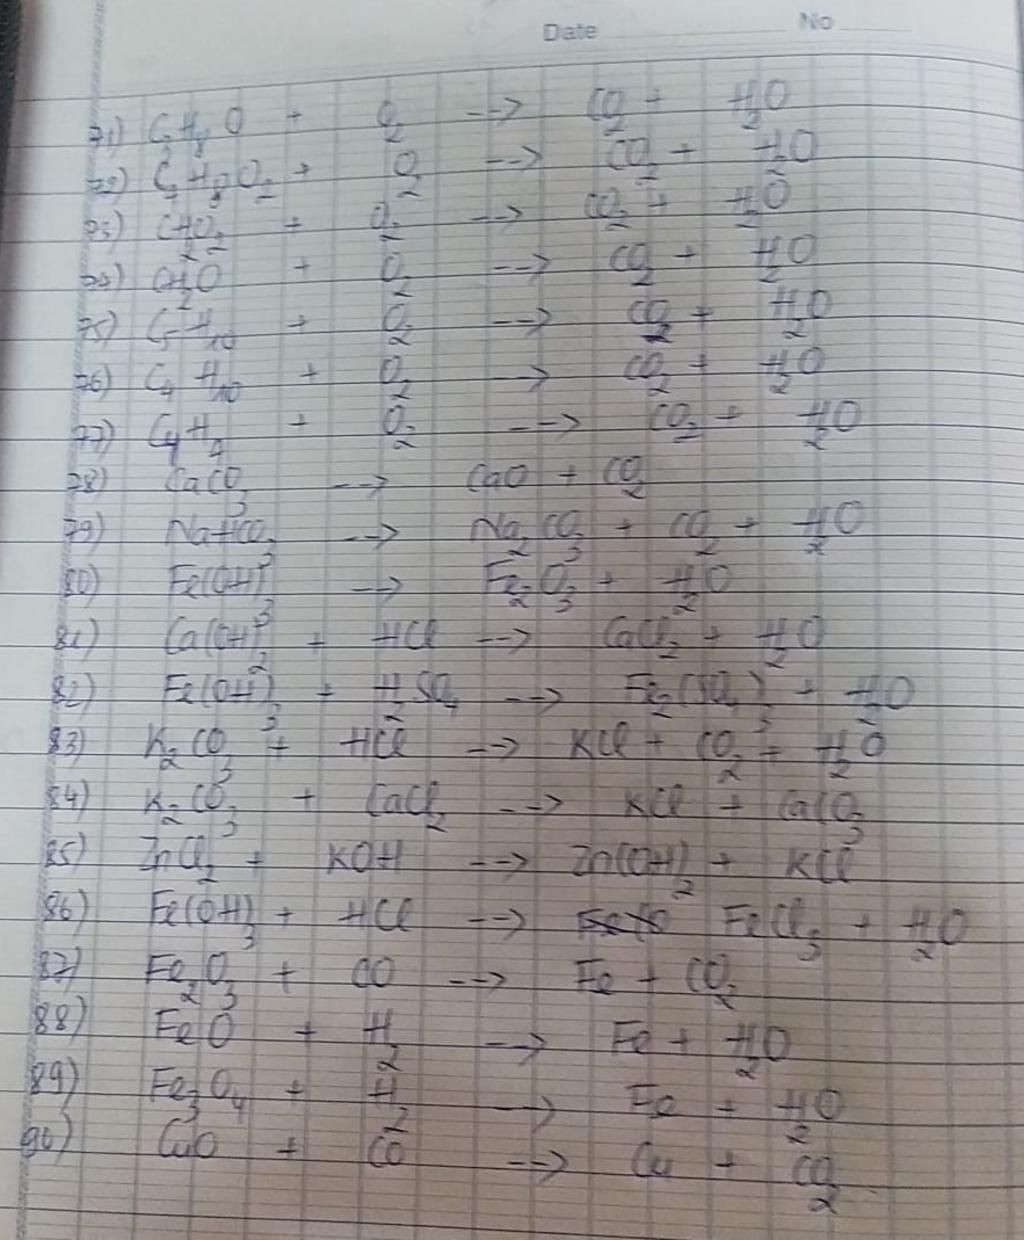 Date No
71) C3H8O + O2 --> CO2 + H2O
72) C4H8O2 + O2 --> CO2 + H2O
73) CH2O2 + O2 --> CO2 + H2O
74) CH2O + O2 --> CO2 + H2O
75) C5H10 + O2 --> CO2 + H2O
76) C4H10 + O2 --> CO2 + H2O
77) C4H4 + O2 --> CO2 + H2O
78) CaCO3 --> CaO + CO2
79) NaHCO3 --> Na2CO3 + CO2 + H2O
80) Fe(OH)3 --> Fe2O3 + H2O
81) Ca(OH)2 + HCl --> CaCl2 + H2O
82) Fe(OH)3 + H2SO4 --> Fe2(SO4)3 + H2O
83) K2CO3 + HCl --> KCl + CO2 + H2O
84) K2CO3 + CaCl2 --> KCl + CaCO3
85) ZnCl2 + KOH --> Zn(OH)2 + KCl
86) Fe(OH)3 + HCl --> FeCl3 + H2O
87) Fe2O3 + CO --> Fe + CO2
88) FeO + H2 --> Fe + H2O
89) Fe3O4 + H2 --> Fe + H2O
90) CuO + CO --> Cu + CO2